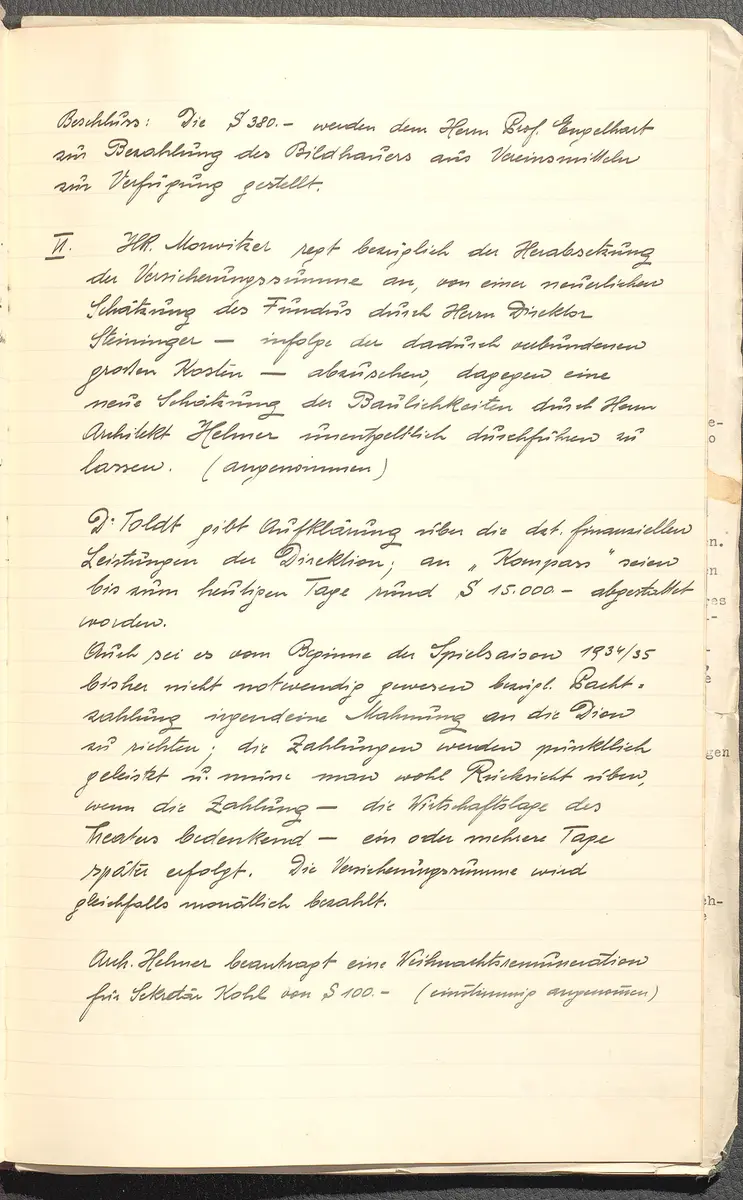 Beschluss: Die S 380.- werden dem Herrn Prof. Engelhart
zur Bezahlung des Bildhauers aus Vereinsmitteln
zur Verfügung gestellt.
VI. HR. Morwitzer regt bezüglich der Herabsetzung
der Versicherungssumme an, von einer neuerlichen
Schätzung des Fundus durch Herrn Direktor
Steininger — infolge der dadurch verbundenen
großen Kosten — abzusehen, dagegen eine
neue Schätzung der Baulichkeiten durch Herrn
Architekt Helmer unentgeltlich durchführen zu
lassen. (angenommen)
Dr Toldt gibt Aufklärung über die dzt. finanziellen
Leistungen der Direktion; an „Kompass" seien
bis zum heutigen Tage rund S 15.000.- abgestattet
worden.
Auch sei es vom Beginne der Spielsaison 1934/35
bisher nicht notwendig gewesen bezügl. Pacht-
zahlung irgendeine Mahnung an die Dion
zu richten; die Zahlungen werden pünktlich
geleistet u. müsse man wohl Rücksicht üben,
wenn die Zahlung — die Wirtschaftslage des
Theaters bedenkend — ein oder mehrere Tage
später erfolgt. Die Versicherungssumme wird
gleichfalls monatlich bezahlt.
Arch. Helmer beantragt eine Weihnachtsremuneration
für Sekretär Kohl von S 100.- (einstimmig angenommen)